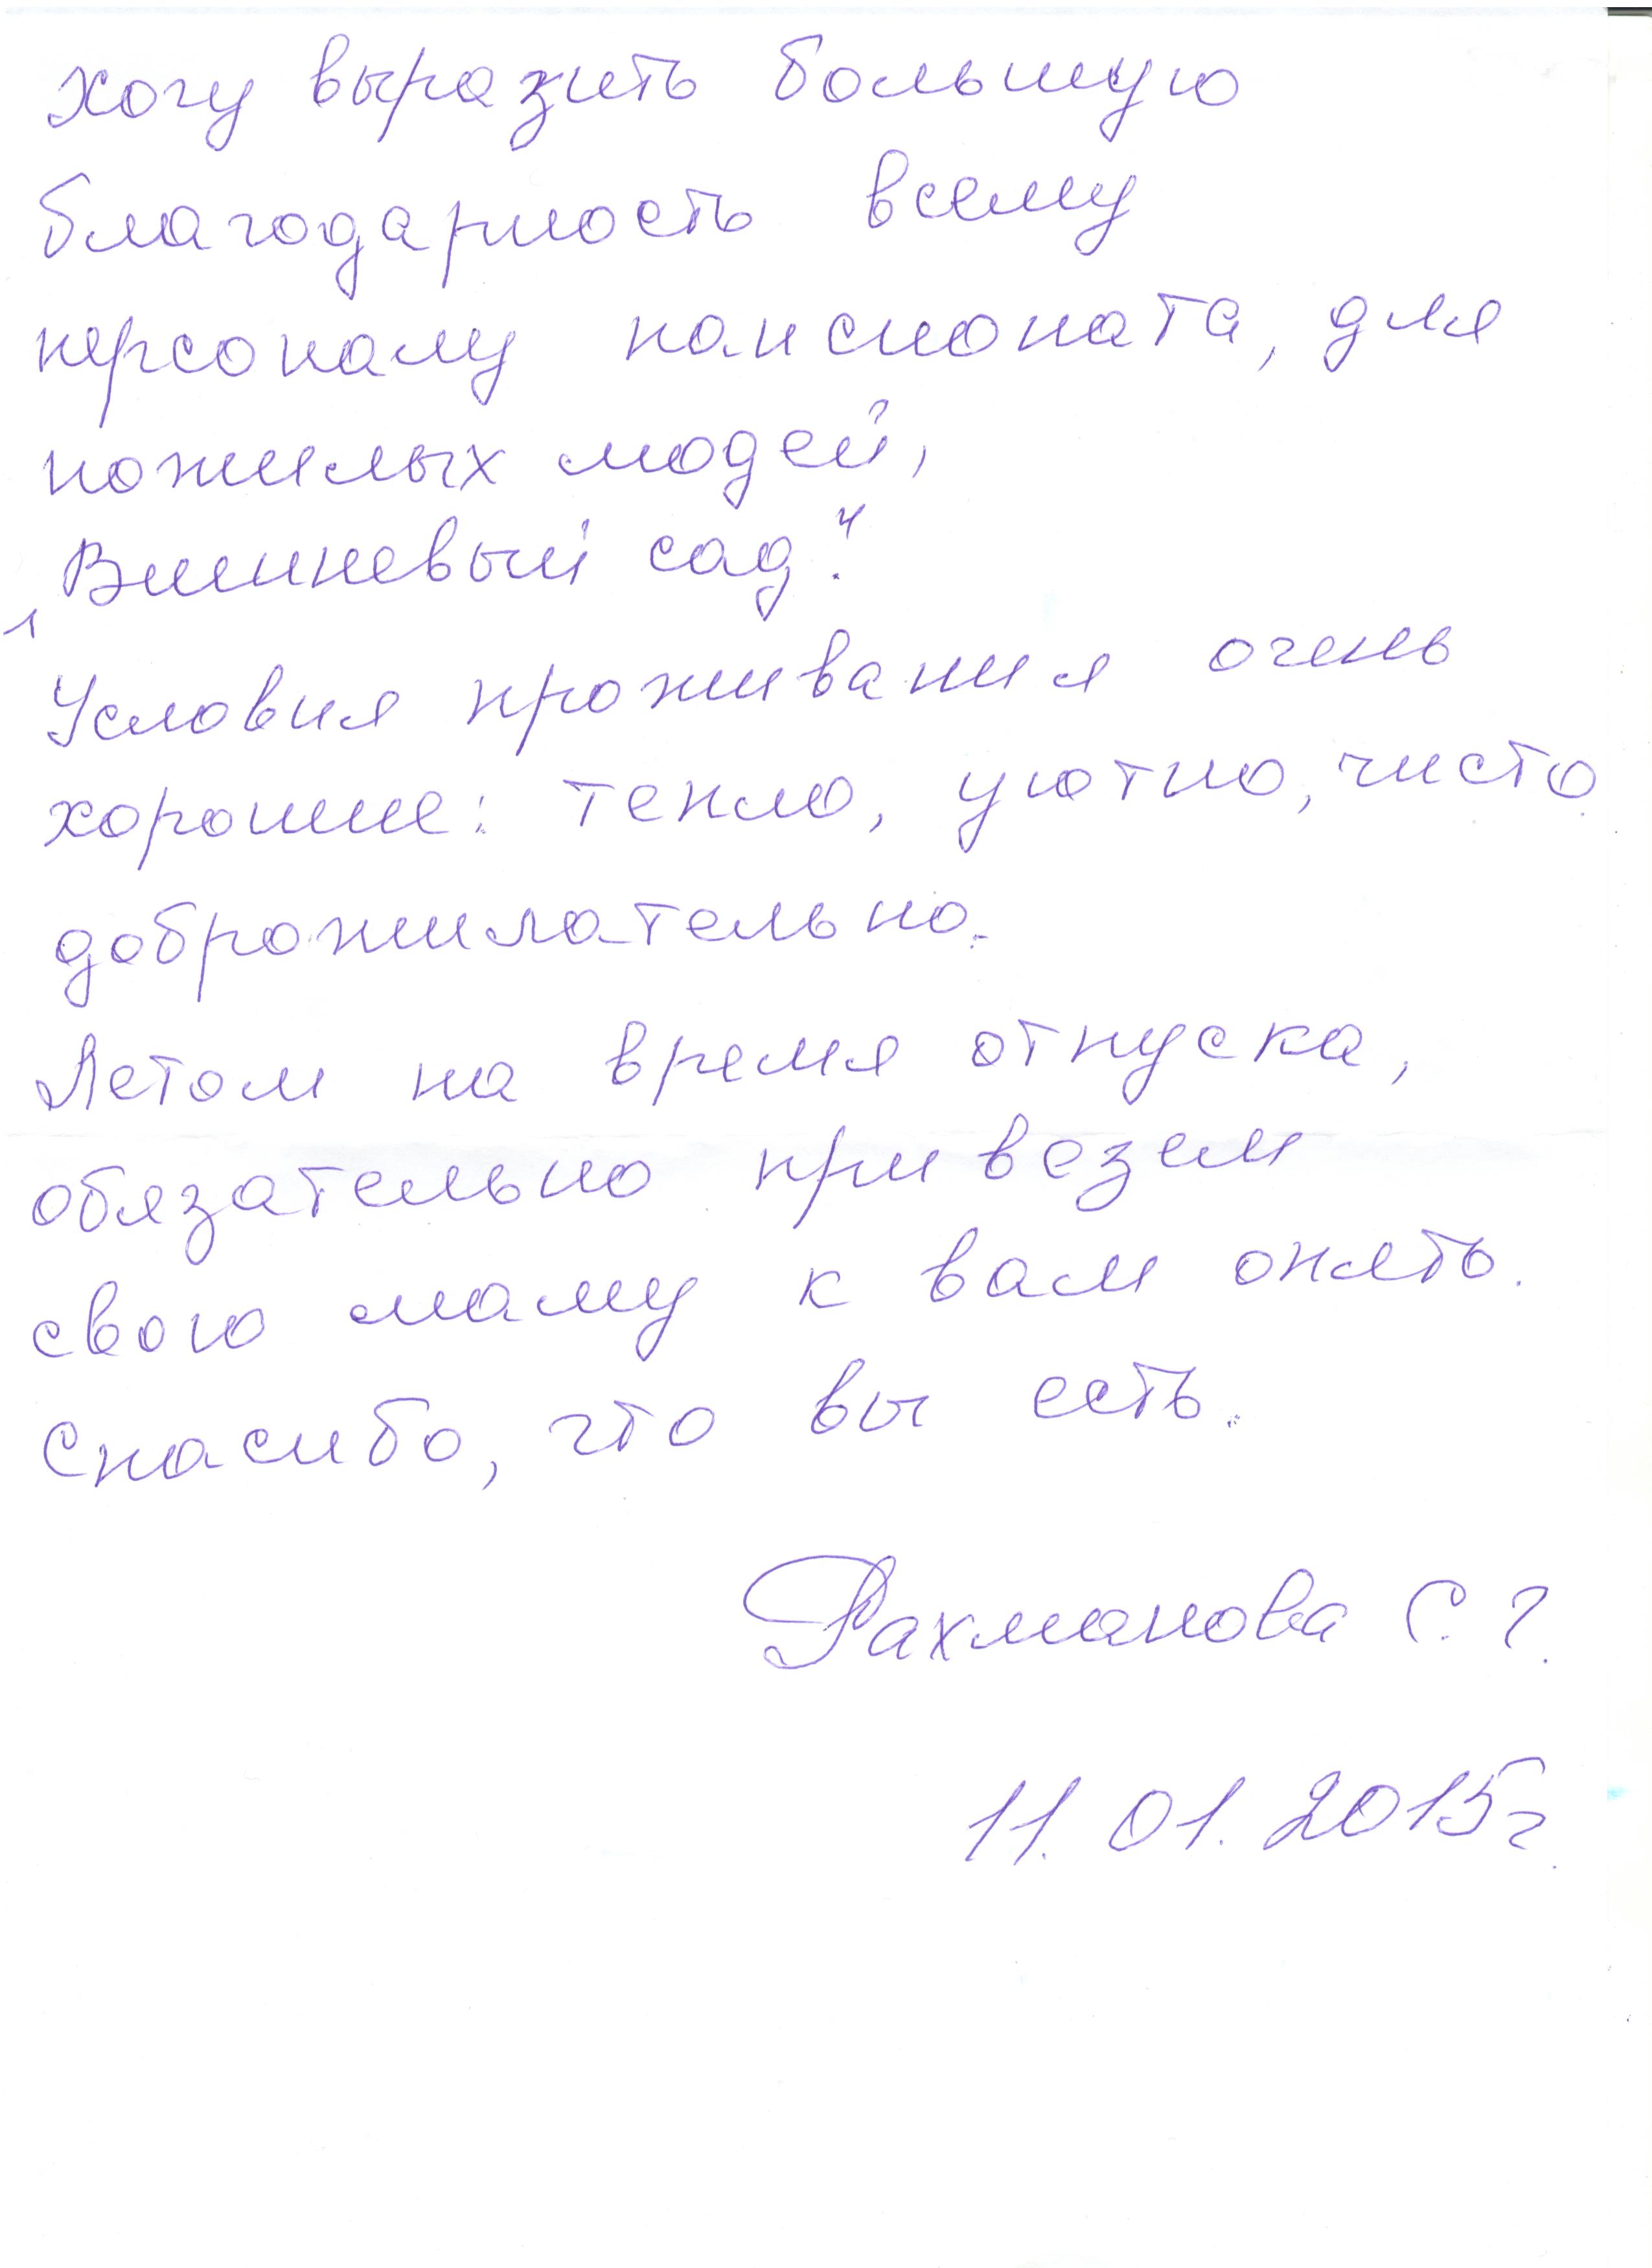 Хочу выразить большую
благодарность всему
персоналу пансионата, для
пожилых людей,
Вишневый сад".
Условия проживания очень
хорошие: тепло, уютно, чисто
доброжилательно.
Летом на время отпуска,
обязательно привезем
свою маму к вам опять.
Спасибо, что вы есть.
Рахманова С. Г.
11. 01. 2015г.